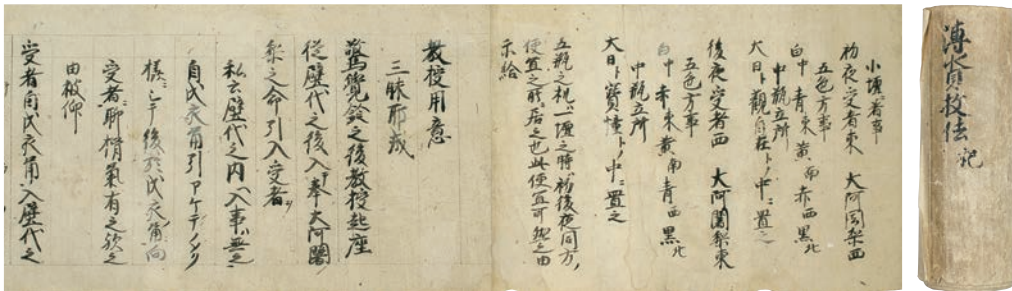 小壇ニ者事
初夜受者東　大阿闍梨西
五色方事
白中　青東　黄南　赤西　黒北
中瓶立所
大日ト観自在トノ中ニ置之
後夜受者西　大阿闍梨東
五色方事
白中　赤東　黄南　青西　黒北
中瓶立所
大日ト宝幢トノ中ニ置之
五瓶之、一壇之時、初後夜同方
便宜之所居之也此便宜可然之由
示給
教授用意
三昧耶戒
驚覚鈴之後教授起座
従壁代之後入テ奉大阿闍
梨之命引入受者
私云壁代之内ヘ入事無之
自氏衣角引
後於氏衣角向
受者聊有之歟之
由被仰
受者自氏衣角入壁代之
薄賢救伝 記